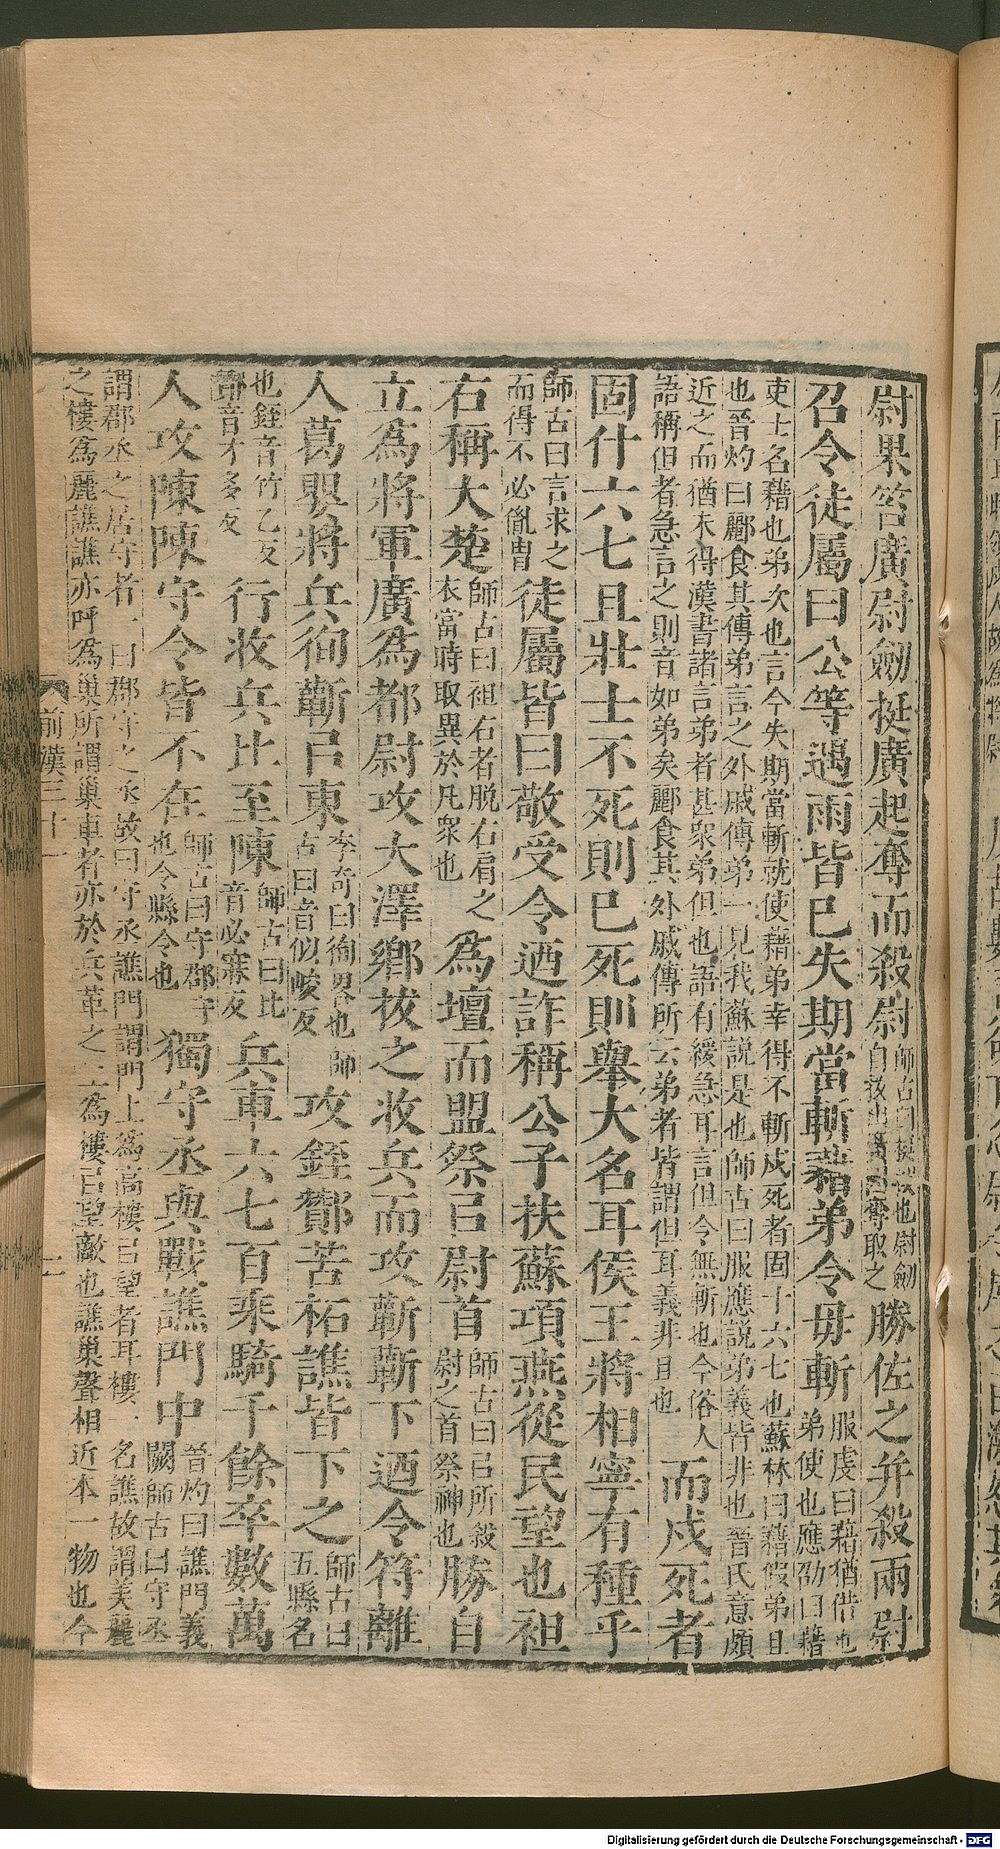 尉果笞廣尉劒挺廣起奪而殺尉師古曰挺拔也尉劒自拔出廣因奪取之勝佐之并殺兩尉
召令徒屬曰公等遇雨皆已失期當斬藉弟令毋斬服虔曰藉猶借也弟使也應劭曰藉
吏士名藉也弟次也言今失期當斬就使藉弟幸得不斬戍死者固十六七也蘇林曰藉假弟且
也晉灼曰酈食其傳弟言之外戚傳弟一見我蘇說是也師古曰服應說弟義皆非也晉氏意頗
近之而猶未得漢書諸言弟者甚衆弟但也語有緩急耳言但令無斬也今俗人
語稱但者急言之則音如弟矣酈食其外戚傳所云弟者皆謂但耳義非且也而戍死者
固什六七且壯士不死則已死則舉大名耳侯王將相寧有種乎
師古曰言求之而得不必胤胄徒屬皆曰敬受令迺詐稱公子扶蘇項燕從民望也袒
右稱大楚師古曰袒右者脫右肩之衣當時取異於凡衆也為壇而盟祭㠯尉首師古曰㠯所殺尉之首祭神也勝自
立為將軍廣為都尉攻大澤鄉拔之收兵而攻蘄蘄下迺令符離
人葛嬰將兵徇蘄㠯東李奇曰徇畧也師古曰音似峻反攻銍酇苦柘譙皆下之師古曰五縣名
也銍音竹乙反酇音才多反行收兵比至陳師古曰比音必寐反兵車六七百乘騎千餘卒數萬
人攻陳陳守令皆不在師古曰守郡守也令縣令也獨守丞與戰譙門中晉灼曰譙門義闕師古曰守丞
謂郡丞之居守者一曰郡守之丞故曰守丞譙門謂門上為高樓㠯望者耳樓一名譙故謂美麗
之樓為麗譙譙亦呼為巢所謂巢車者亦於兵革之上為樓㠯望敵也譙巢聲相近本一物也今
前漢三十一
Digitalisierung gefördert durch die Deutsche Forschungsgemeinschaft - DFG